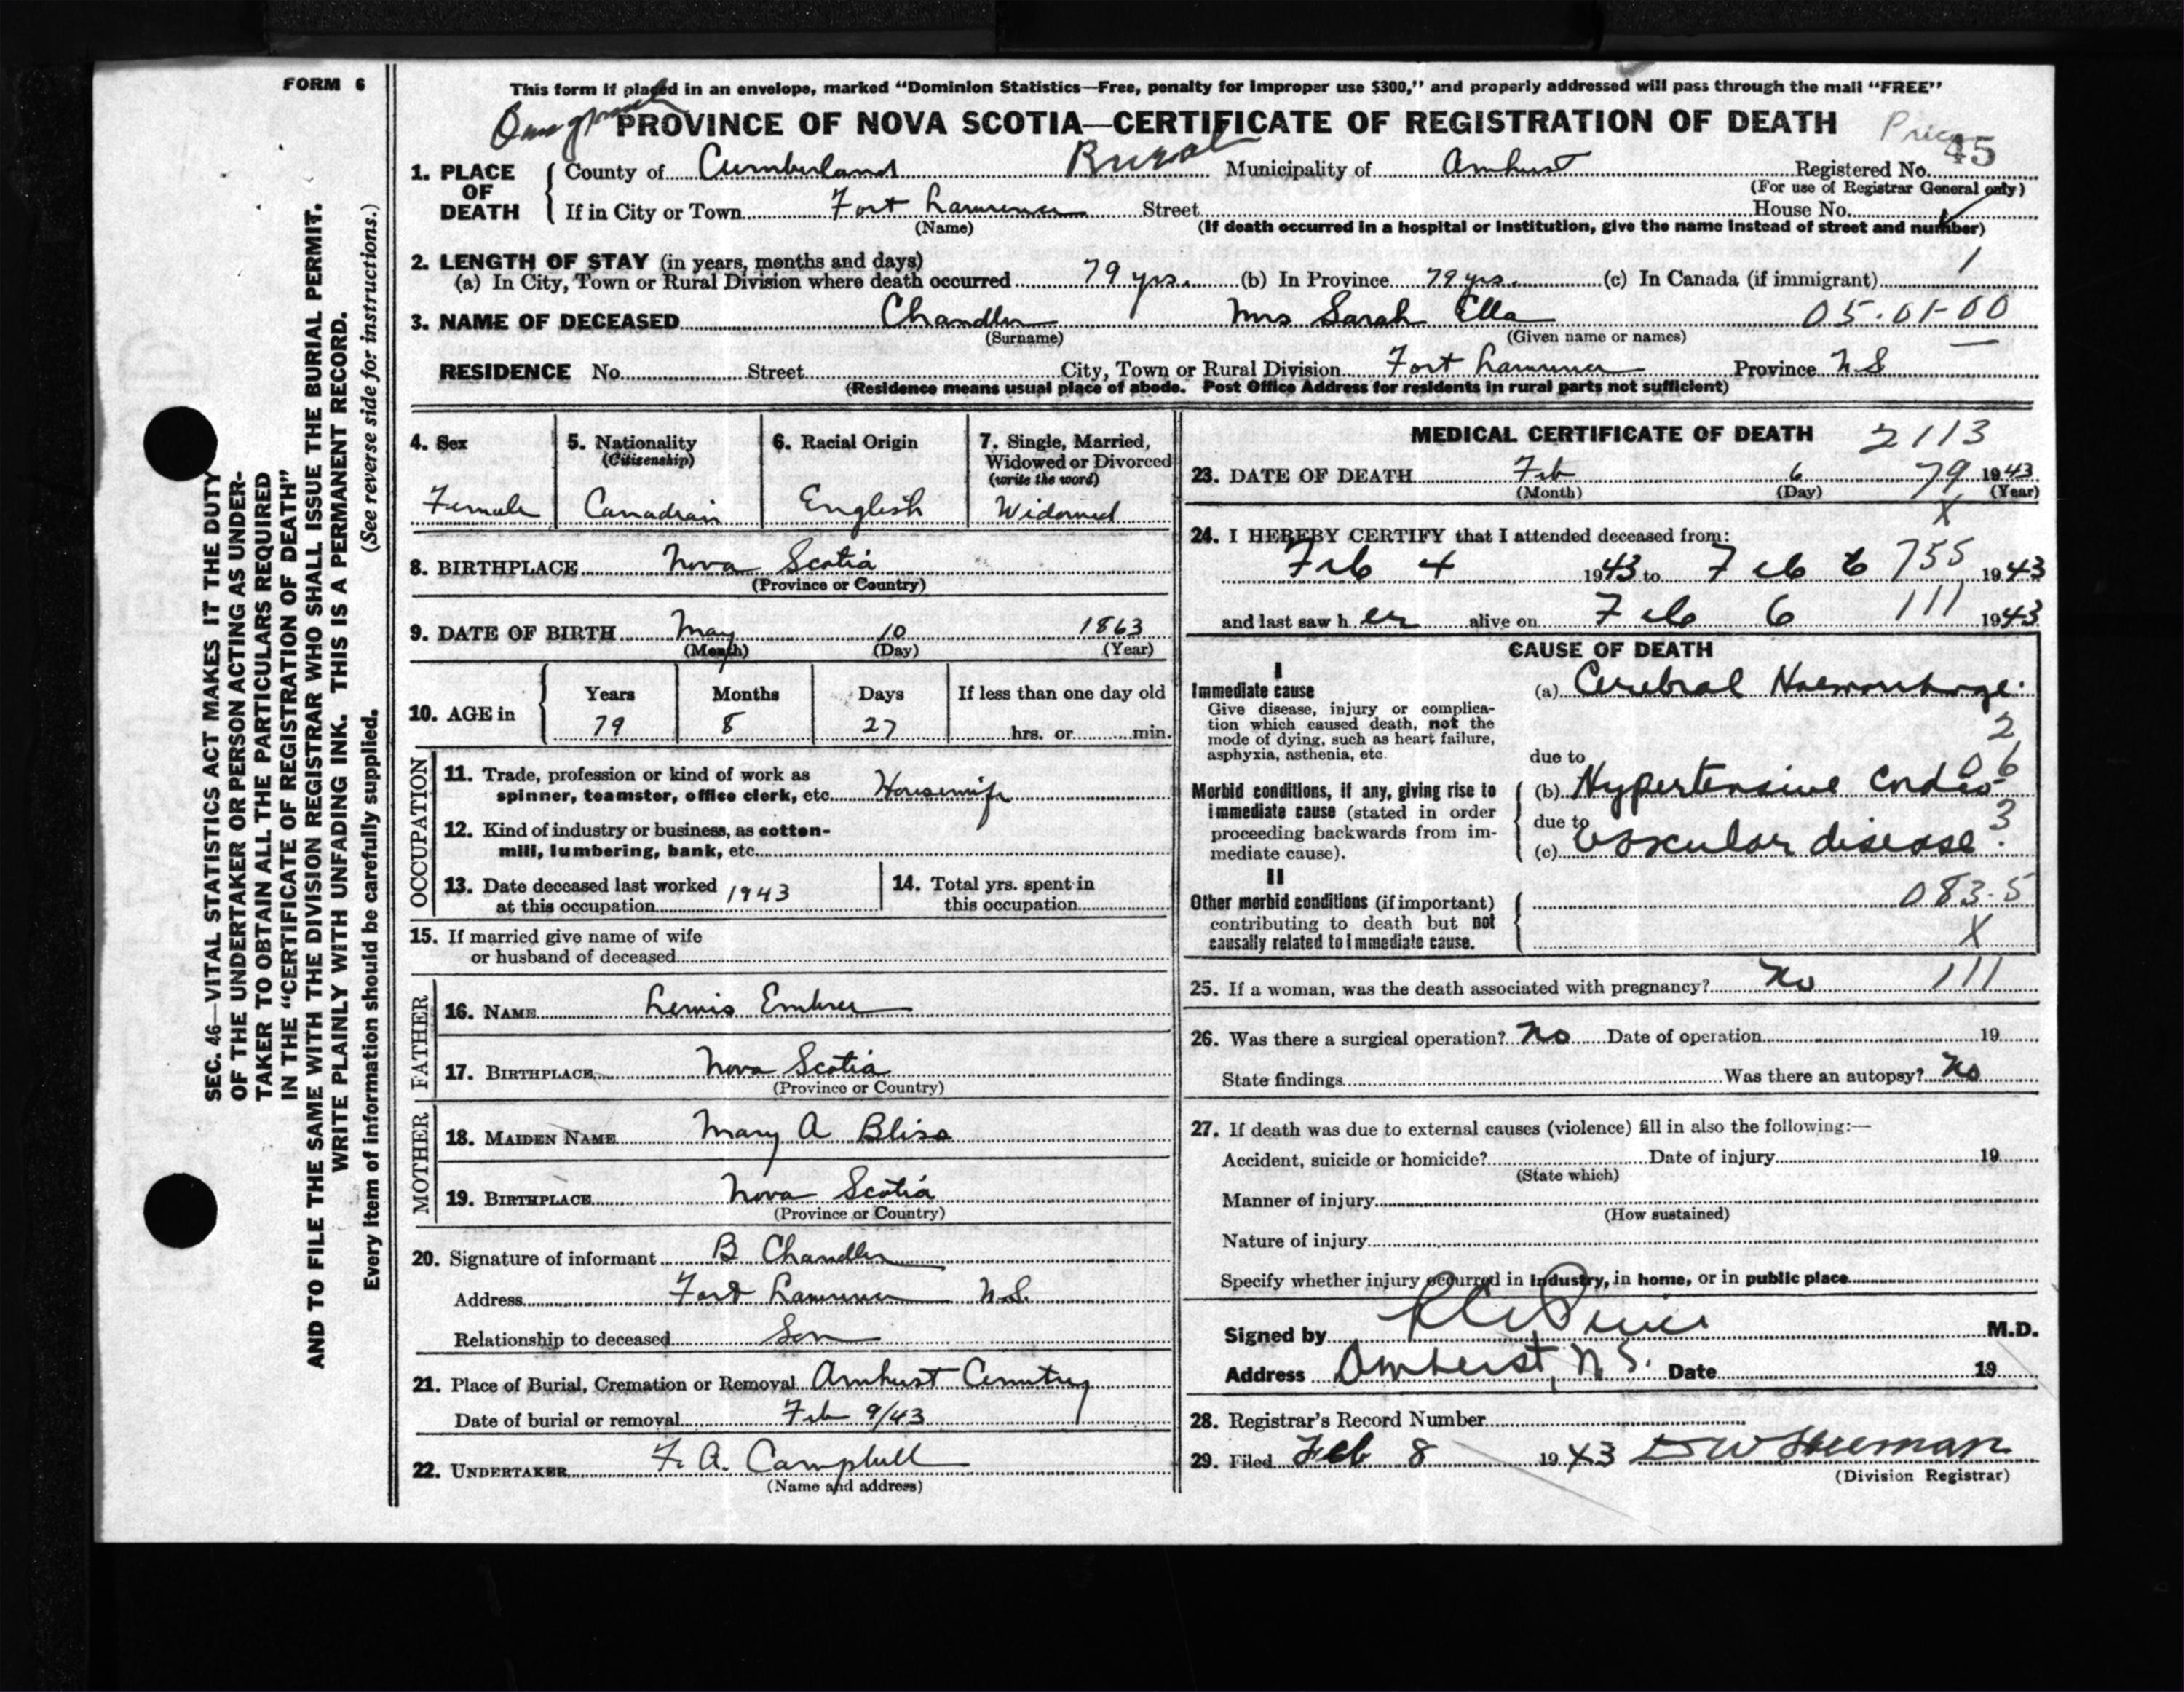 FORM 6
This form if placed in an envelope, marked “Dominion Statistics—Free, penalty for improper use $300,” and properly addressed will pass through the mail “FREE”
PROVINCE OF NOVA SCOTIA—CERTIFICATE OF REGISTRATION OF DEATH
45
1. PLACE OF DEATH
County of Cumberland Rural Municipality of Amherst Registered No.
(For use of Registrar General only)
If in City or Town Fort Lawrence Street House No.
(Name) (If death occurred in a hospital or institution, give the name instead of street and number)
2. LENGTH OF STAY (in years, months and days)
(a) In City, Town or Rural Division where death occurred 79 yrs. (b) In Province 79 yrs. (c) In Canada (if immigrant) 1
3. NAME OF DECEASED Chandler Mrs Sarah Ella 05.01-00
(Surname) (Given name or names)
RESIDENCE No. Street City, Town or Rural Division Fort Lawrence Province N S
(Residence means usual place of abode. Post Office Address for residents in rural parts not sufficient)
4. Sex
Female
5. Nationality
(Citizenship)
Canadian
6. Racial Origin
English
7. Single, Married,
Widowed or Divorced
(write the word)
Widowed
8. BIRTHPLACE Nova Scotia
(Province or Country)
9. DATE OF BIRTH May 10 1863
(Month) (Day) (Year)
10. AGE in
Years Months Days If less than one day old
79 8 27 hrs. or min.
OCCUPATION
11. Trade, profession or kind of work as
spinner, teamster, office clerk, etc. Housewife
12. Kind of industry or business, as cotton-
mill, lumbering, bank, etc.
13. Date deceased last worked
at this occupation 1943
14. Total yrs. spent in
this occupation
15. If married give name of wife
or husband of deceased
FATHER
16. NAME Lewis Embree
17. BIRTHPLACE Nova Scotia
(Province or Country)
MOTHER
18. MAIDEN NAME Mary A Bliss
19. BIRTHPLACE Nova Scotia
(Province or Country)
20. Signature of informant B Chandler
Address Fort Lawrence N.S.
Relationship to deceased Son
21. Place of Burial, Cremation or Removal Amherst Cemetery
Date of burial or removal Feb 9/43
22. UNDERTAKER F. A. Campbell
(Name and address)
MEDICAL CERTIFICATE OF DEATH 2113
23. DATE OF DEATH Feb 6 79 1943
(Month) (Day) (Year)
X
24. I HEREBY CERTIFY that I attended deceased from:
Feb 4 1943 to Feb 6 755 1943
and last saw h er alive on Feb 6 111 1943
CAUSE OF DEATH
I
Immediate cause
Give disease, injury or complica-
tion which caused death, not the
mode of dying, such as heart failure,
asphyxia, asthenia, etc.
(a) Cerebral Haemorrhage.
2
due to
06
Morbid conditions, if any, giving rise to
immediate cause (stated in order
proceeding backwards from im-
mediate cause).
(b) Hypertensive Cardio
due to
3
(c) vascular disease.
II
Other morbid conditions (if important)
contributing to death but not
causally related to immediate cause.
083-5
X
25. If a woman, was the death associated with pregnancy? No 111
26. Was there a surgical operation? No Date of operation 19
State findings Was there an autopsy? No
27. If death was due to external causes (violence) fill in also the following:—
Accident, suicide or homicide? Date of injury 19
(State which)
Manner of injury
(How sustained)
Nature of injury
Specify whether injury occurred in industry, in home, or in public place
Signed by M.D.
Address Amherst, N S. Date 19
28. Registrar's Record Number
29. Filed Feb 8 1943
(Division Registrar)
SEC. 46—VITAL STATISTICS ACT MAKES IT THE DUTY
OF THE UNDERTAKER OR PERSON ACTING AS UNDER-
TAKER TO OBTAIN ALL THE PARTICULARS REQUIRED
IN THE “CERTIFICATE OF REGISTRATION OF DEATH”
AND TO FILE THE SAME WITH THE DIVISION REGISTRAR WHO SHALL ISSUE THE BURIAL PERMIT.
WRITE PLAINLY WITH UNFADING INK. THIS IS A PERMANENT RECORD.
Every item of information should be carefully supplied. (See reverse side for instructions.)